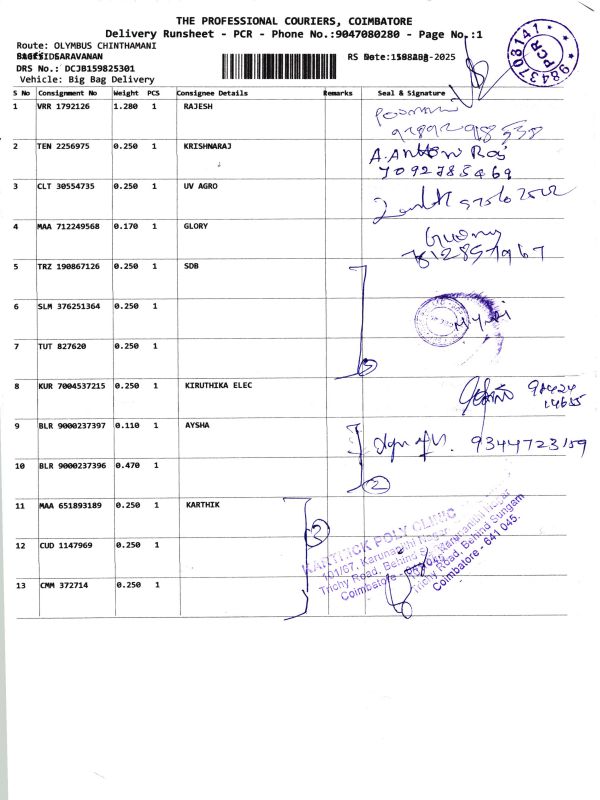 THE PROFESSIONAL COURIERS, COIMBATORE
Delivery Runsheet - PCR - Phone No.:9047080280 - Page No.:1
Route: OLYMBUS CHINTHAMANI
SARAVANAN RS -2025
DRS No.: DCJB159825301
Vehicle: Big Bag Delivery
9843708141
PCR
S No Consignment No Weight PCS Consignee Details Remarks Seal & Signature
1 VRR 1792126 1.280 1 RAJESH
2 TEN 2256975 0.250 1 KRISHNARAJ A. Antony Raj
7092783469
3 CLT 30554735 0.250 1 UV AGRO
4 MAA 712249568 0.170 1 GLORY
5 TRZ 190867126 0.250 1 SDB
6 SLM 376251364 0.250 1
7 TUT 827620 0.250 1
3
8 KUR 7004537215 0.250 1 KIRUTHIKA ELEC 98424
14655
9 BLR 9000237397 0.110 1 AYSHA 9344723159
10 BLR 9000237396 0.470 1
2
11 MAA 651893189 0.250 1 KARTHIK
3
12 CUD 1147969 0.250 1
13 CMM 372714 0.250 1
KARTHICK POLY CLINIC
101/67, Karunanithi Nagar
Trichy Road, Behind Sungam
Coimbatore - 641 045.